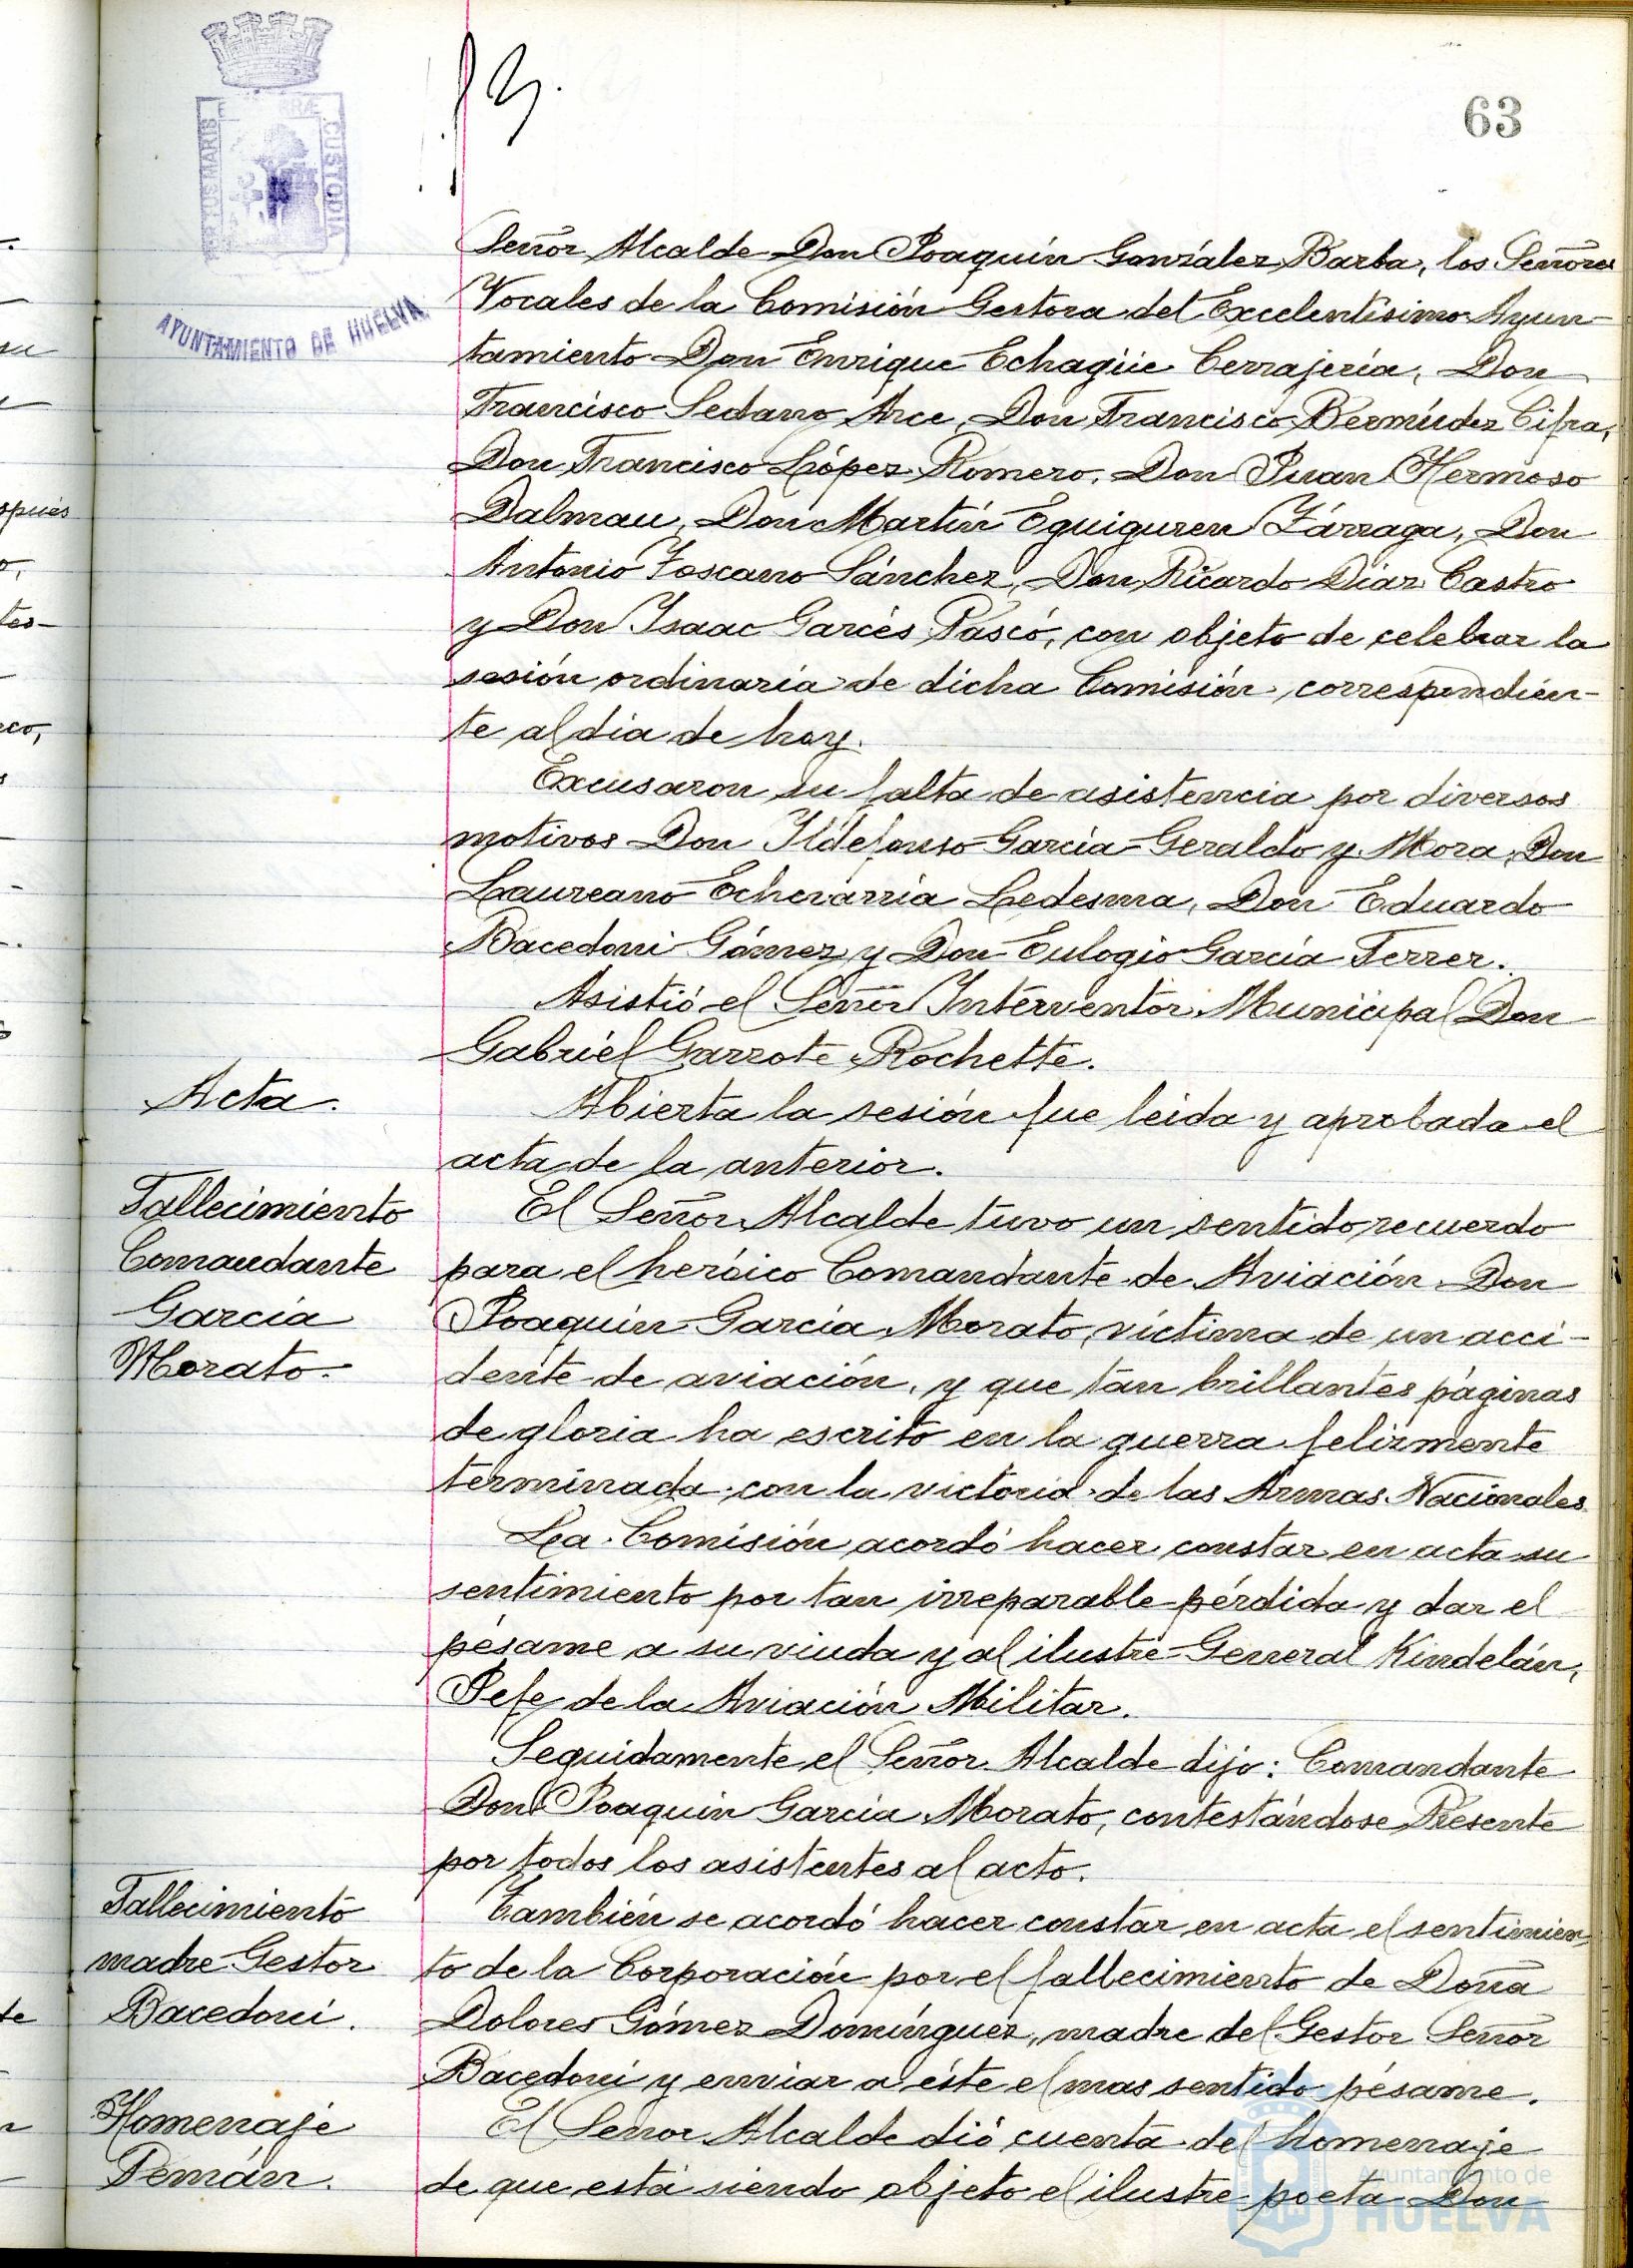 63
PORTUS MARIS
ET TERRÆ
CUSTODIA
AYUNTAMIENTO DE HUELVA
Señor Alcalde Don Joaquín González Barba, los Señores
Vocales de la Comisión Gestora del Excelentísimo Ayun-
tamiento Don Enrique Echagüe Cerrajería, Don
Francisco Sedano Arce, Don Francisco Bermúdez Cifra,
Don Francisco López Romero, Don Juan Hermoso
Dalmau, Don Martín Eguiguren Zárraga, Don
Antonio Toscano Sánchez, Don Ricardo Díaz Castro
y Don Isaac Garcés Pascó, con objeto de celebrar la
sesión ordinaria de dicha Comisión, correspondien-
te al dia de hoy.
Excusaron su falta de asistencia por diversos
motivos Don Ildefonso García-Geraldo y Mora, Don
Laureano Echevarría Ledesma, Don Eduardo
Bacedoni Gómez y Don Eulogio García Ferrer.
Asistió el Señor Interventor Municipal Don
Gabriel Garrote Rochette.
Acta.
Abierta la sesión fue leida y aprobada el
acta de la anterior.
Fallecimiento
Comandante
García
Morato.
El Señor Alcalde tuvo un sentido recuerdo
para el heróico Comandante de Aviación Don
Joaquín García Morato, víctima de un acci-
dente de aviación, y que tan brillantes páginas
de gloria ha escrito en la guerra felizmente
terminada con la victoria de las Armas Nacionales.
La Comisión acordó hacer constar en acta su
sentimiento por tan irreparable pérdida y dar el
pésame a su viuda y al ilustre General Kindelán,
Jefe de la Aviación Militar.
Seguidamente el Señor Alcalde dijo: Comandante
Don Joaquín García Morato, contestándose Presente
por todos los asistentes al acto.
Fallecimiento
madre Gestor
Bacedoni.
También se acordó hacer constar en acta el sentimien-
to de la Corporación por el fallecimiento de Doña
Dolores Gómez Domínguez, madre del Gestor Señor
Bacedoni y enviar a éste el mas sentido pésame.
Homenaje
Pemán.
El Señor Alcalde dió cuenta del homenaje
de que está siendo objeto el ilustre poeta Don
Ayuntamiento de
HUELVA